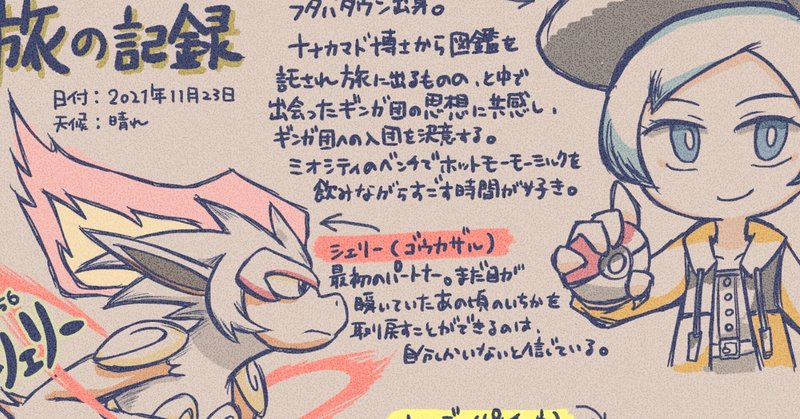 旅の記録
日付：2021年11月23日
天候：晴れ
フタバタウン出身。
ナナカマド博士から図鑑を
託され旅に出るものの、と中で
出会ったギンガ団の思想に共感し、
ギンガ団への入団を決意する。
ミオシティのベンチでホットモーモーミルクを
飲みながらすごす時間が好き。
シェリー(ゴウカザル)
最初のパートナー。まだ目が
輝いていたあの頃のいちかを
取り戻すことができるのは、
自分しかいないと信じている。
56
シェリー